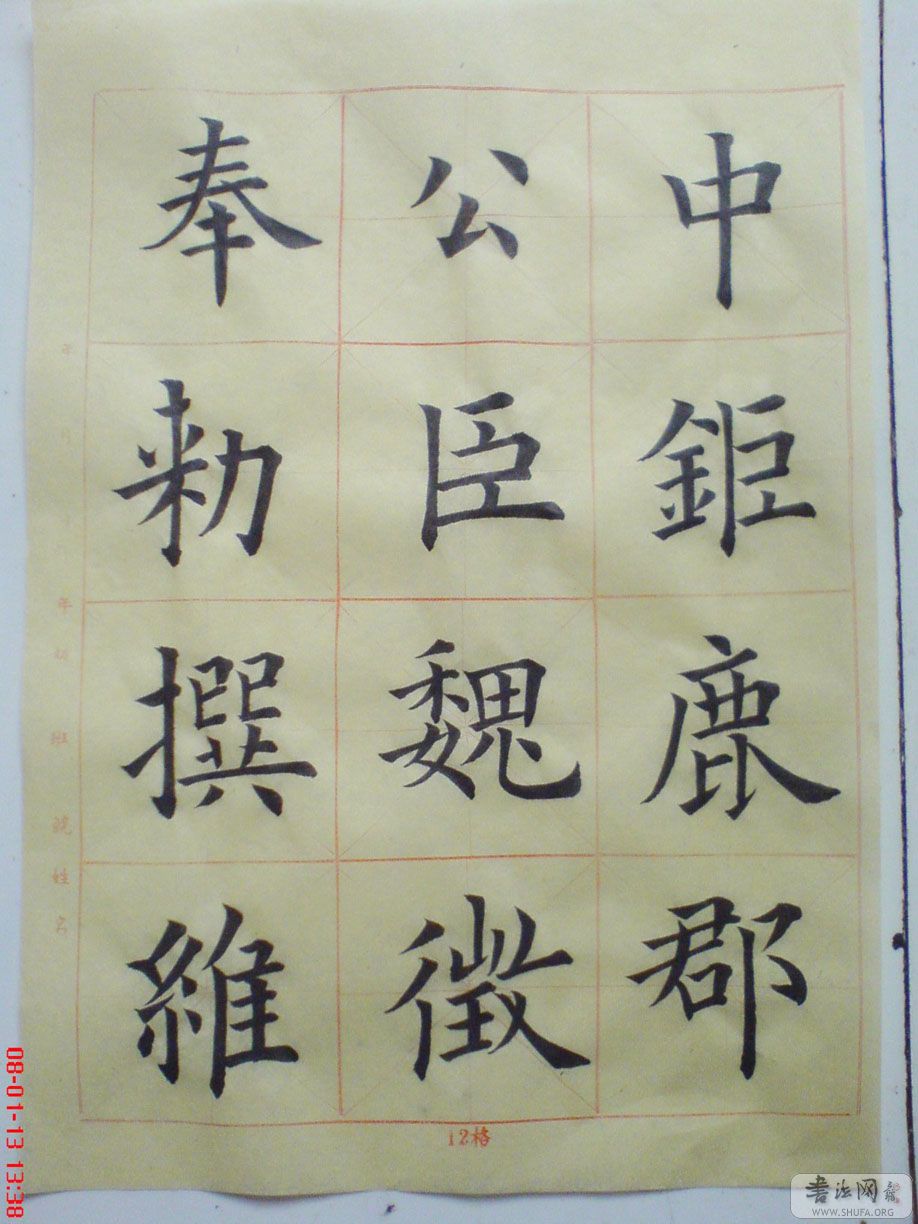 中鉅鹿郡
公臣魏徵
奉勑撰維
年 月
年級 班 號 姓名
12格
08-01-13 13:38
書法网
WWW.SHUFA.ORG